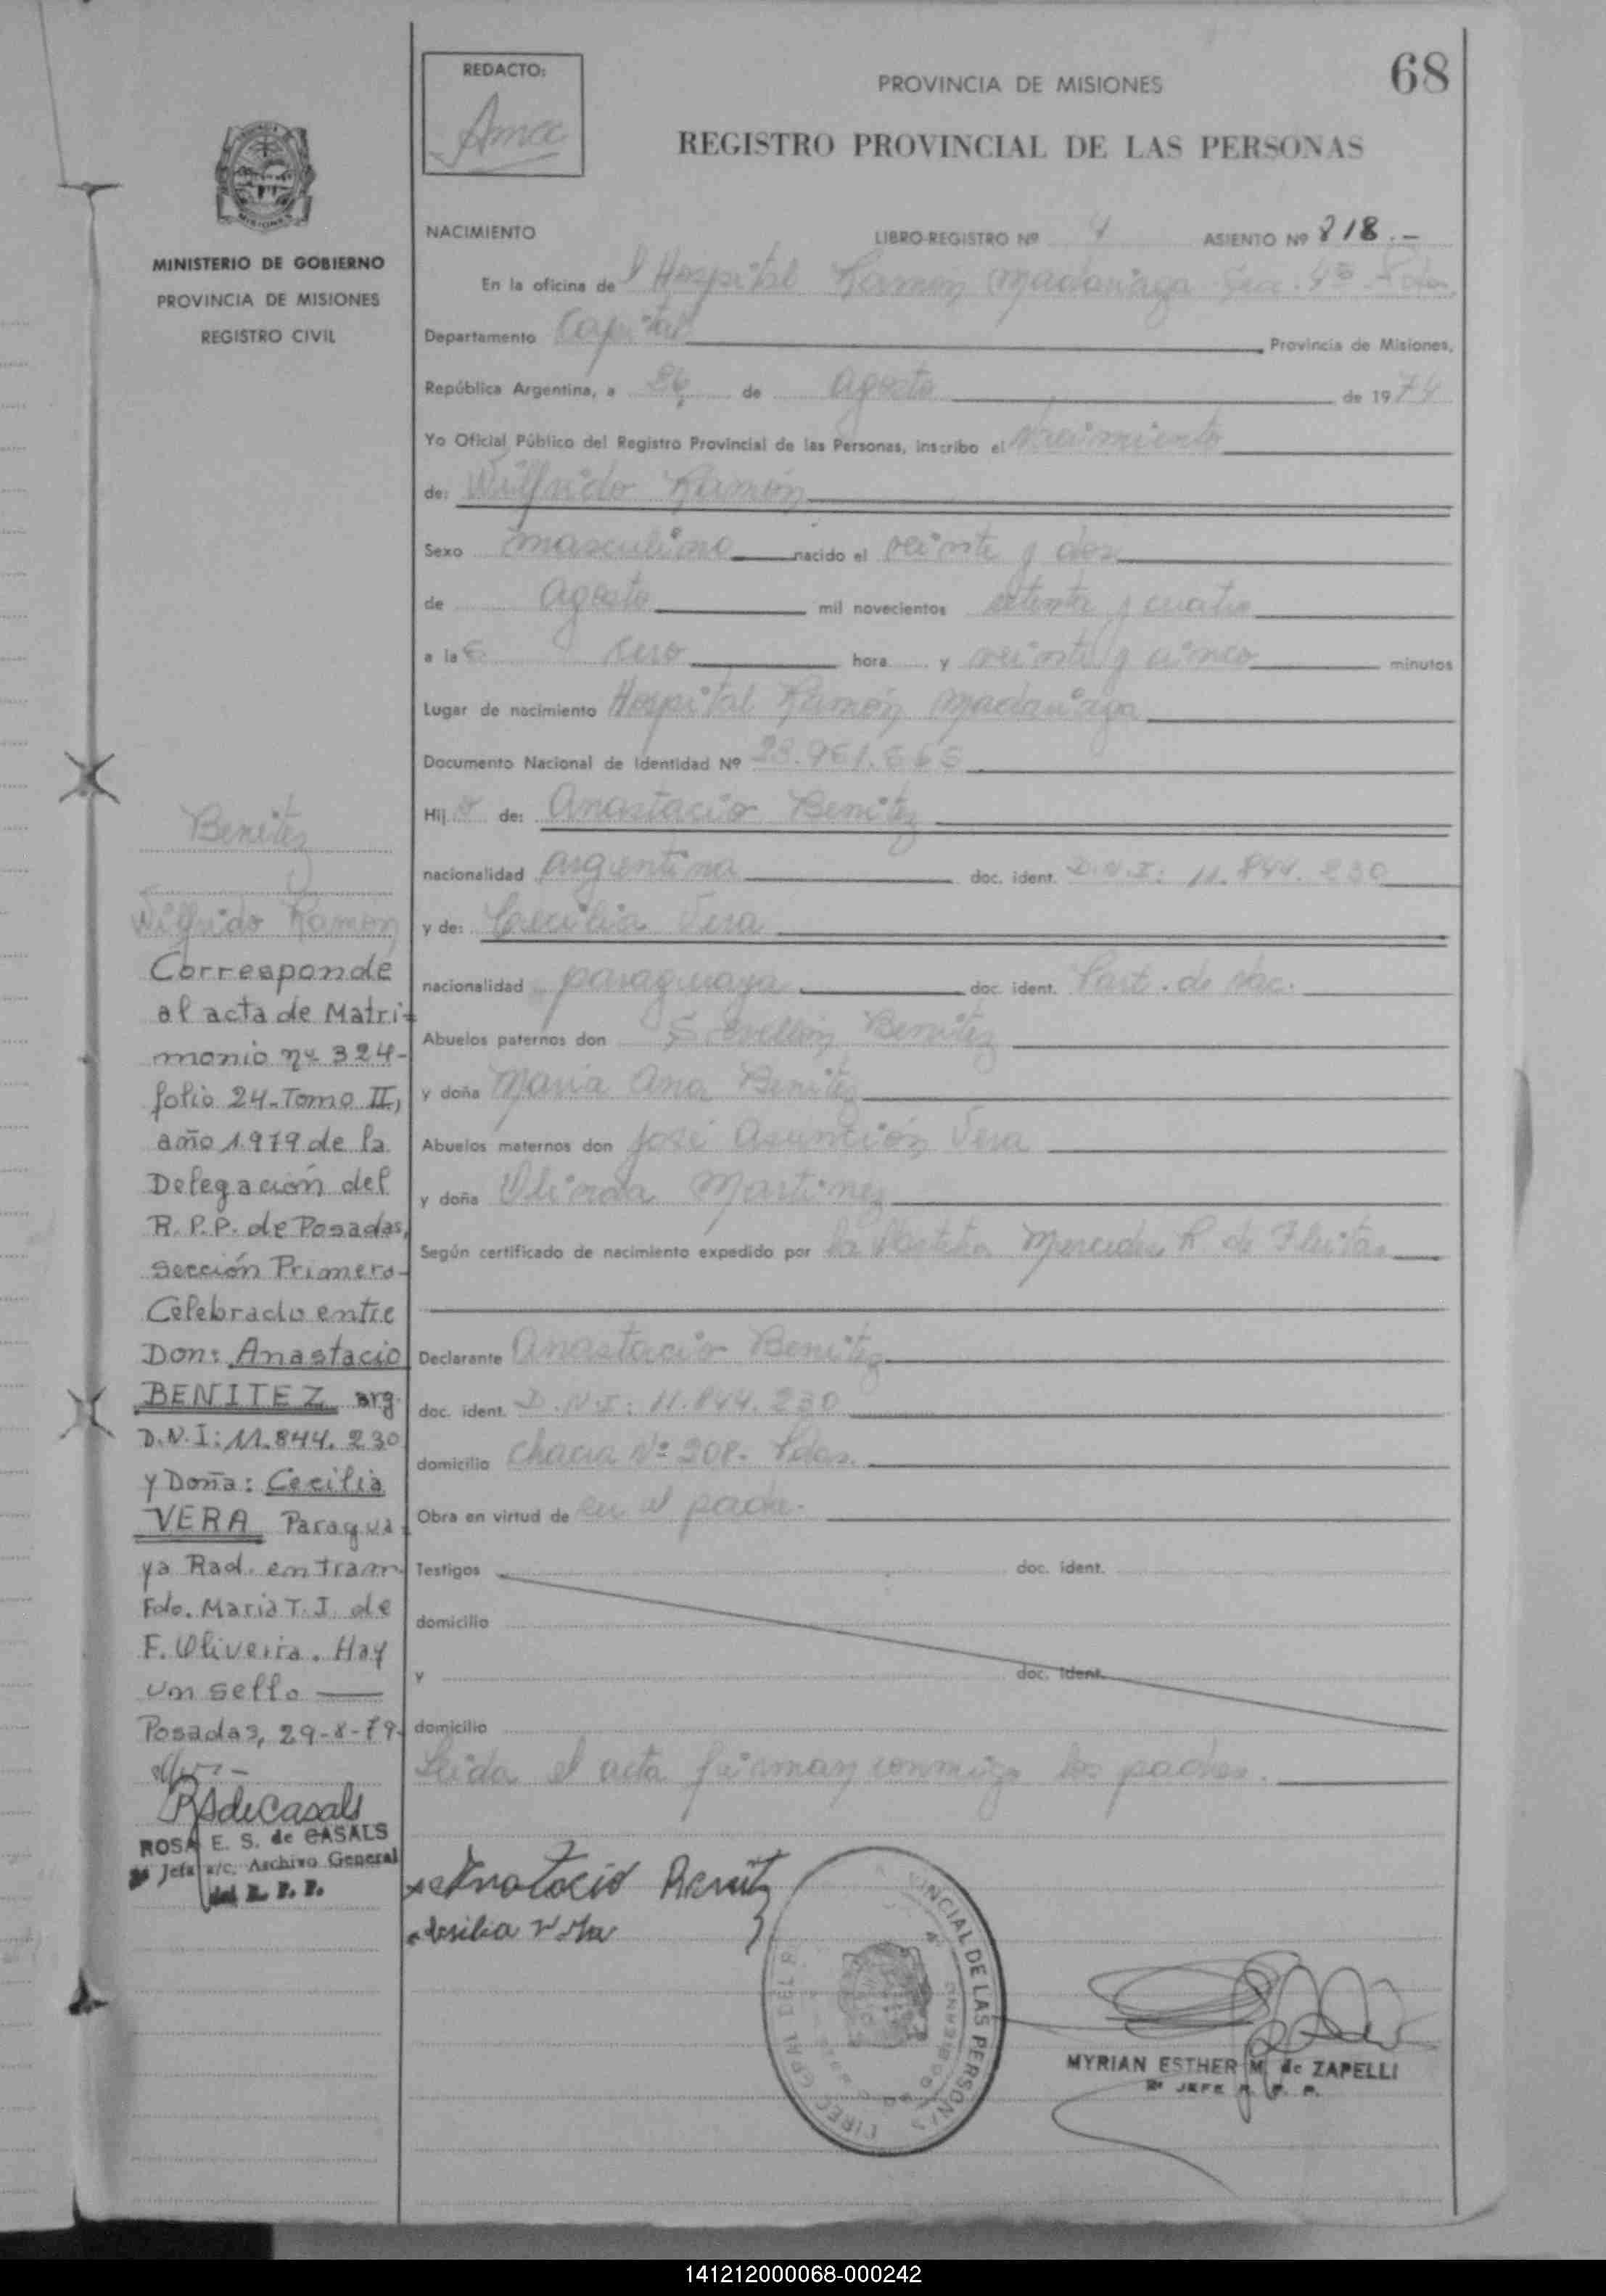 68
REDACTO:
PROVINCIA DE MISIONES
REGISTRO PROVINCIAL DE LAS PERSONAS
MISIONES
MINISTERIO DE GOBIERNO
PROVINCIA DE MISIONES
REGISTRO CIVIL
NACIMIENTO LIBRO-REGISTRO Nº 4 ASIENTO Nº 818.-
En la oficina del Hospital Ramón Madariaga Secc. 4ª Pdas.
Departamento Capital Provincia de Misiones,
República Argentina, a 26 de agosto de 1974
Yo Oficial Público del Registro Provincial de las Personas, inscribo el nacimiento
de: Wilfrido Ramón
Sexo masculino nacido el veinte y dos
de agosto mil novecientos setenta y cuatro
a las cero hora y veinte y cinco minutos
Lugar de nacimiento Hospital Ramón Madariaga
Documento Nacional de Identidad Nº 23.961.
Hijo de: Anastacio Benitez
nacionalidad argentina doc. ident. D.N.I: 11.844.230
y de: Cecilia Vera
nacionalidad paraguaya doc. ident. Part. de Nac.
Abuelos paternos don Benitez
y doña Maria Ana Benitez
Abuelos maternos don José Asunción Vera
y doña Olinda Martinez
Según certificado de nacimiento expedido por la Partera Mercedes R de Fleitas
Declarante Anastacio Benitez
doc. ident. D.N.I: 11.844.230
domicilio Chacra Nº 208. Pdas.
Obra en virtud de ser el padre.
Testigos doc. ident.
domicilio
y doc. ident.
domicilio
Leida el acta firman conmigo los padres.
Benitez
Wilfrido Ramón
Corresponde
al acta de Matri-
monio nº 324-
folio 24-Tomo II,
año 1.979 de la
Delegación del
R.P.P. de Posadas,
sección Primera-
Celebrado entre
Don: Anastacio
BENITEZ arg.
D.N.I: 11.844.230
y Doña: Cecilia
VERA Paragua
ya Rad. en tram
Fdo. Maria T.J. de
F. Oliveira. Hay
un sello —
Posadas, 29-8-79.
RSdeCasals
ROSA E. S. de CASALS
2ª Jefa a/c. Archivo General
del R. P. P.
Anatacio Benitz
sesilia vera
DIREC. GRAL. DEL R. PROVINCIAL DE LAS PERSONAS
MYRIAN ESTHER M. de ZAPELLI
2ª JEFE R. P. P.
141212000068-000242